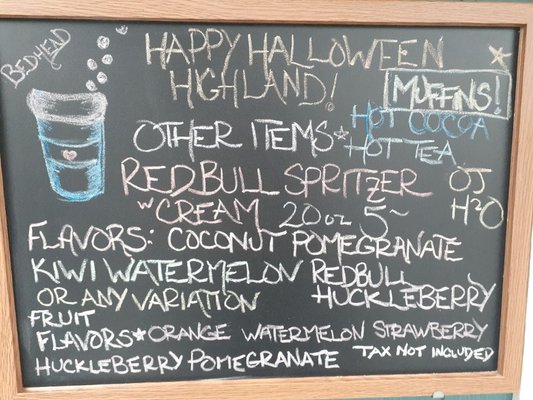 BEDHEAD
HAPPY HALLOWEEN
HIGHLAND!
MUFFINS!
HOT COCOA
HOT TEA
OJ
H2O
OTHER ITEMS*
REDBULL SPRITZER
W CREAM 20oz 5~
FLAVORS: COCONUT POMEGRANATE
KIWI WATERMELON REDBULL
OR ANY VARIATION HUCKLEBERRY
FRUIT
FLAVORS* ORANGE WATERMELON STRAWBERRY
HUCKLEBERRY POMEGRANATE TAX NOT INCLUDED